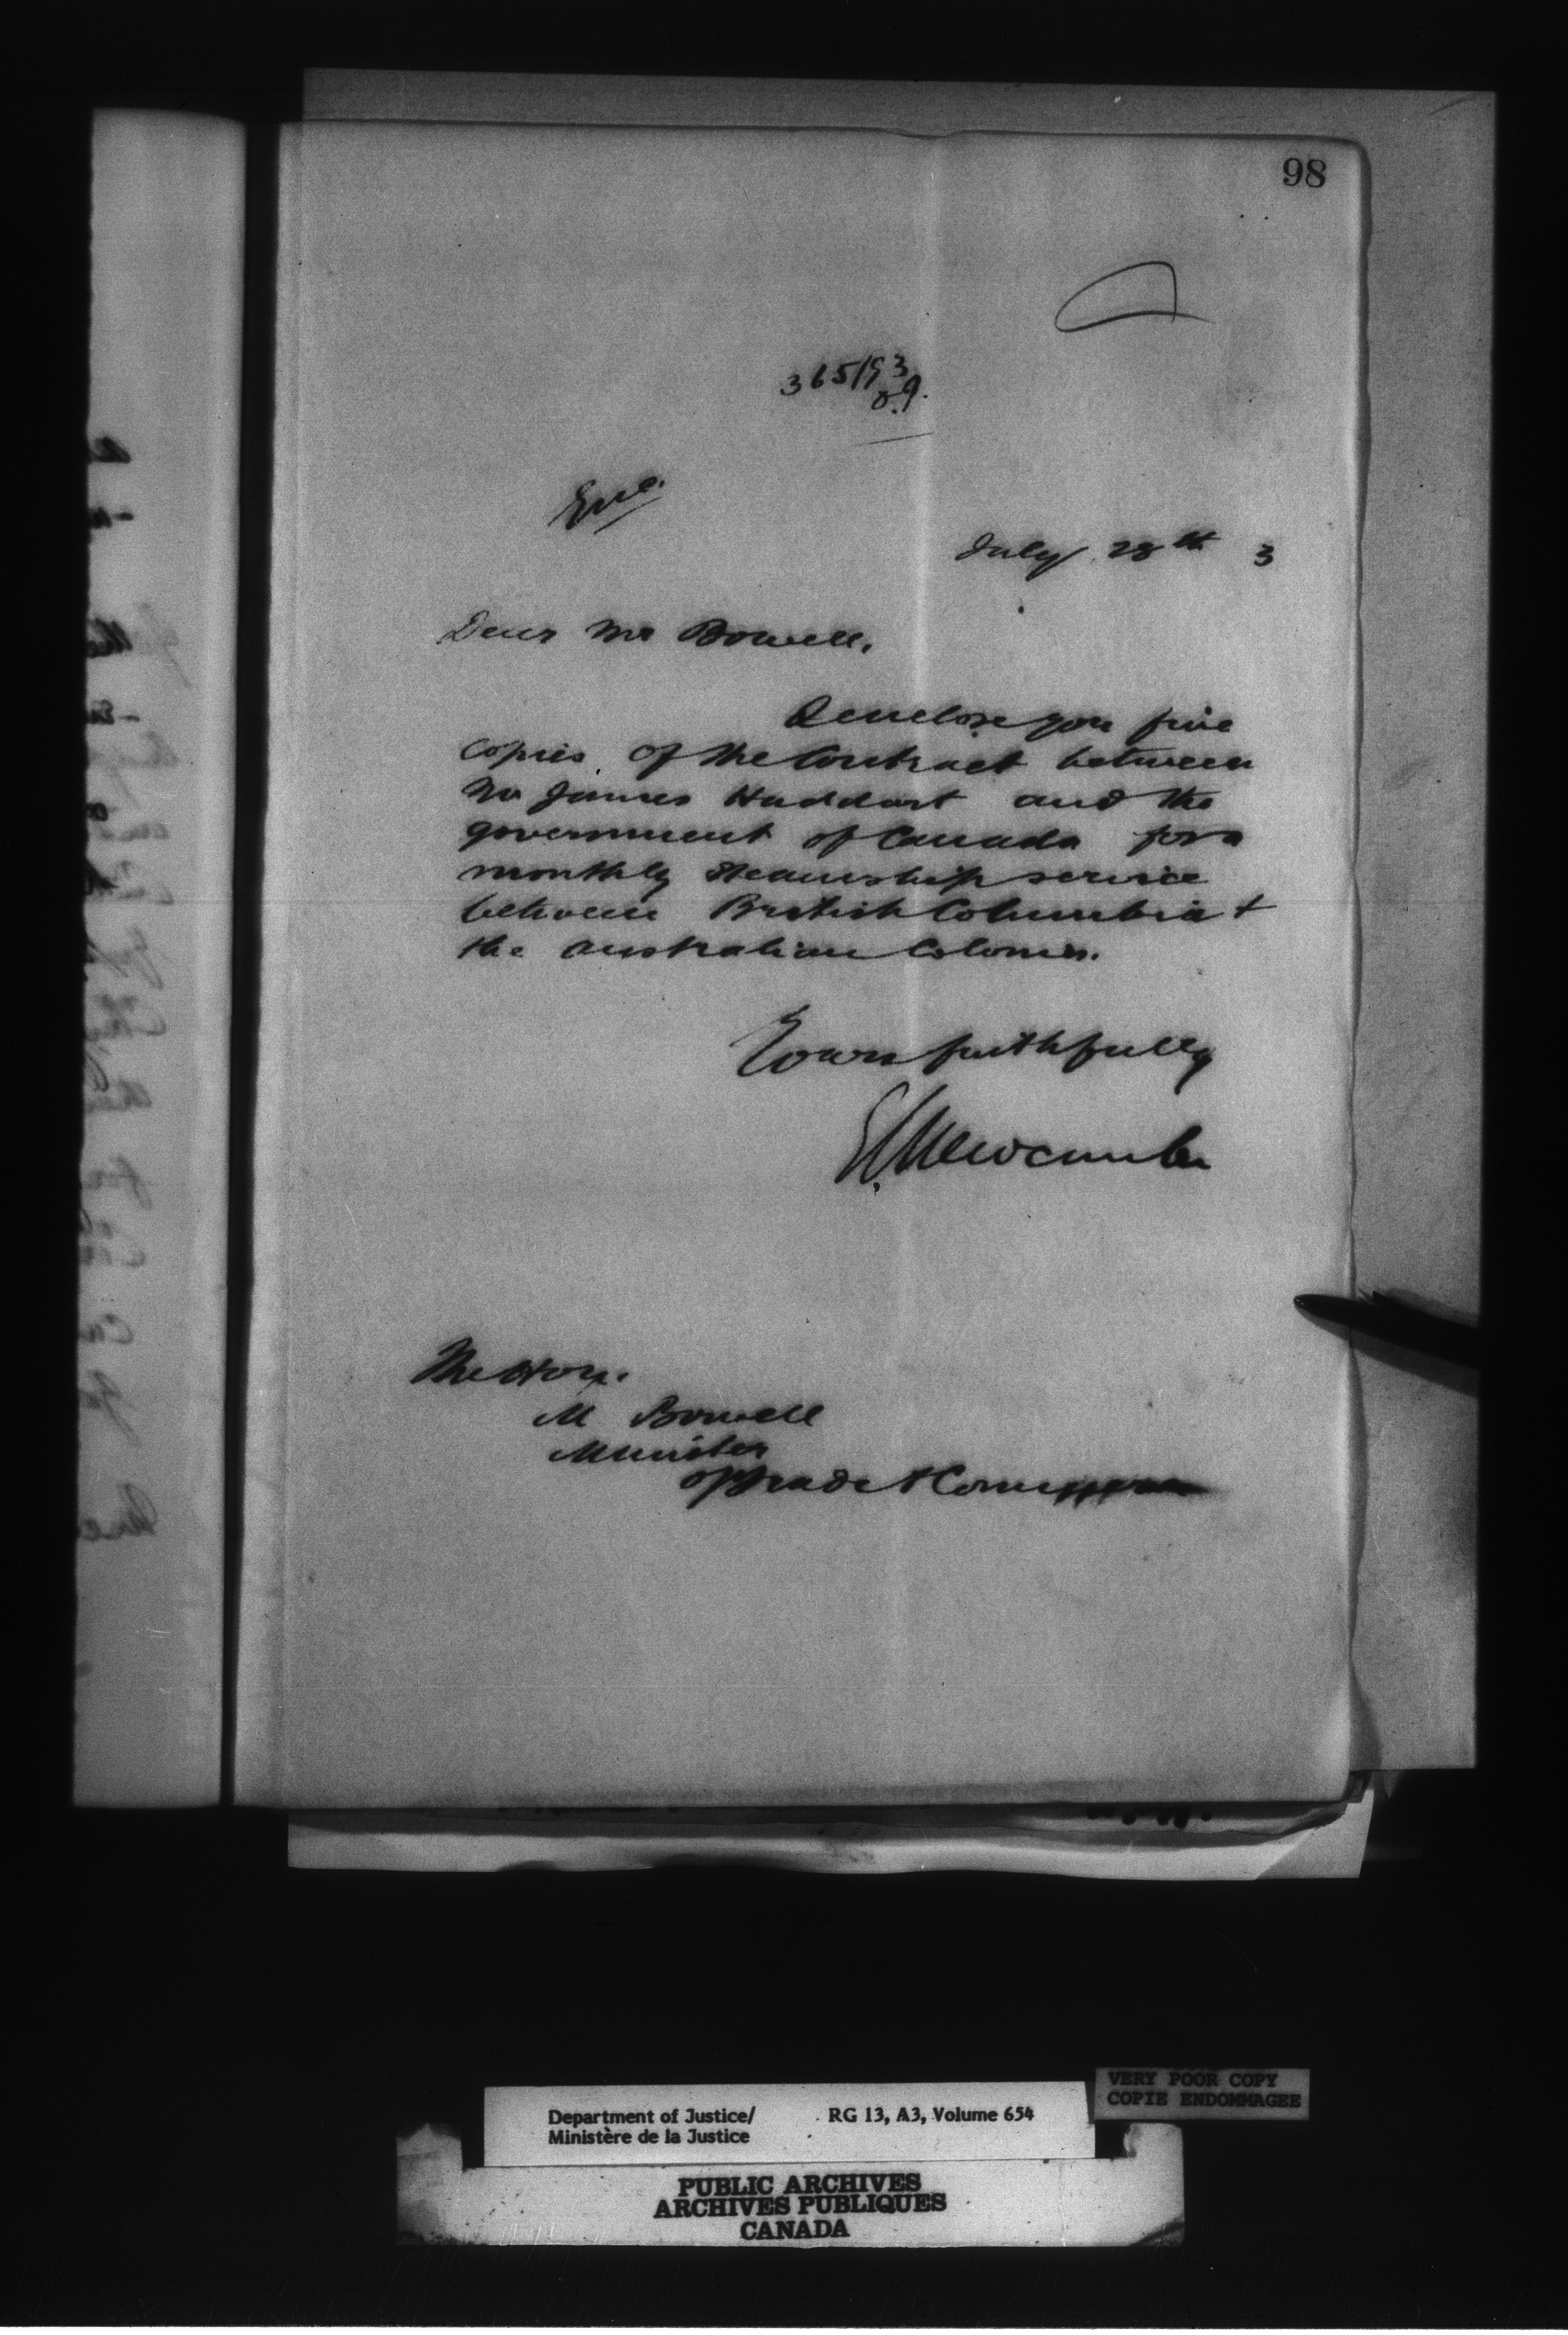 98
365/93
Enc.
July 28th 3
Dear Mr Bowell,
I enclose you five
copies of the Contract between
Mr James Huddart and the
government of Canada for a
monthly steamship service
between British Columbia +
the Australian Colonies.
Yours faithfully
E L Newcombe
The Hon.
M Bowell
Minister
of Trade & Commerce
VERY POOR COPY
COPIE ENDOMMAGEE
Department of Justice/ RG 13, A3, Volume 654
Ministère de la Justice
PUBLIC ARCHIVES
ARCHIVES PUBLIQUES
CANADA